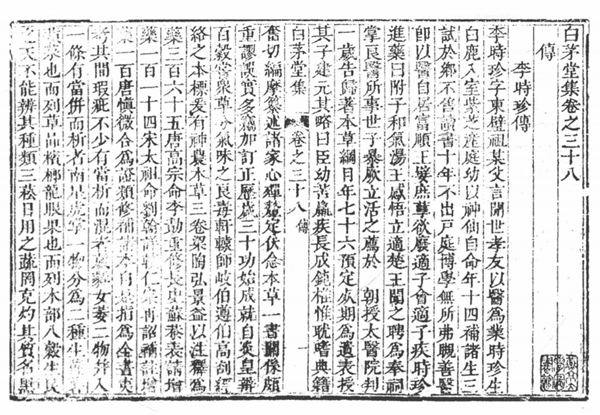 白茅堂集卷之三十八
傳
李時珍傳
李時珍字東璧祖某父言聞世孝友以醫為業時珍生
白鹿入室紫芝產庭幼以神仙自命年十四補諸生三
試於鄉不售讀書十年不出戶庭博學無所弗瞡善醫
即以醫自居富順王嬖庶孽欲廢適子會適子疾時珍
進藥曰附子和氣湯王感悟立適楚王聞之聘為奉祠
掌良醫所事世子暴厥立活之薦於 朝授太醫院判
一歲告歸著本草綱目年七十六預定死期為遺表授
其子建元其略曰臣幼苦羸疾長成鈍椎惟耽嗜典籍
白茅堂集 卷之三十八 傳
奮切編摩纂述諸家心殫釐定伏念本草一書關係頗
重謬誤實多竊加訂正歷歲三十功始成就自炎皇辨
百穀嘗眾草分氣味之良毒軒轅師岐伯遵伯高剖經
絡之本標爰有神農本草三卷梁陶弘景益以注釋為
藥三百六十五唐高宗命李勣重修長史蘇恭表請增
藥一百一十四宋太祖命劉翰詳校仁宗再詔補註增
藥一百唐慎微合為證類修補諸本自是指為全書夷
考其間瑕疵不少有當析而混者葳蕤女萎二物并入
一條有當併而析者南星虎掌一物分為二種生薑薯
蕷菜也而列草品檳榔龍眼果也而列木部八穀生民
之天不能辨其種類三菘日用之蔬罔克灼其質名黑